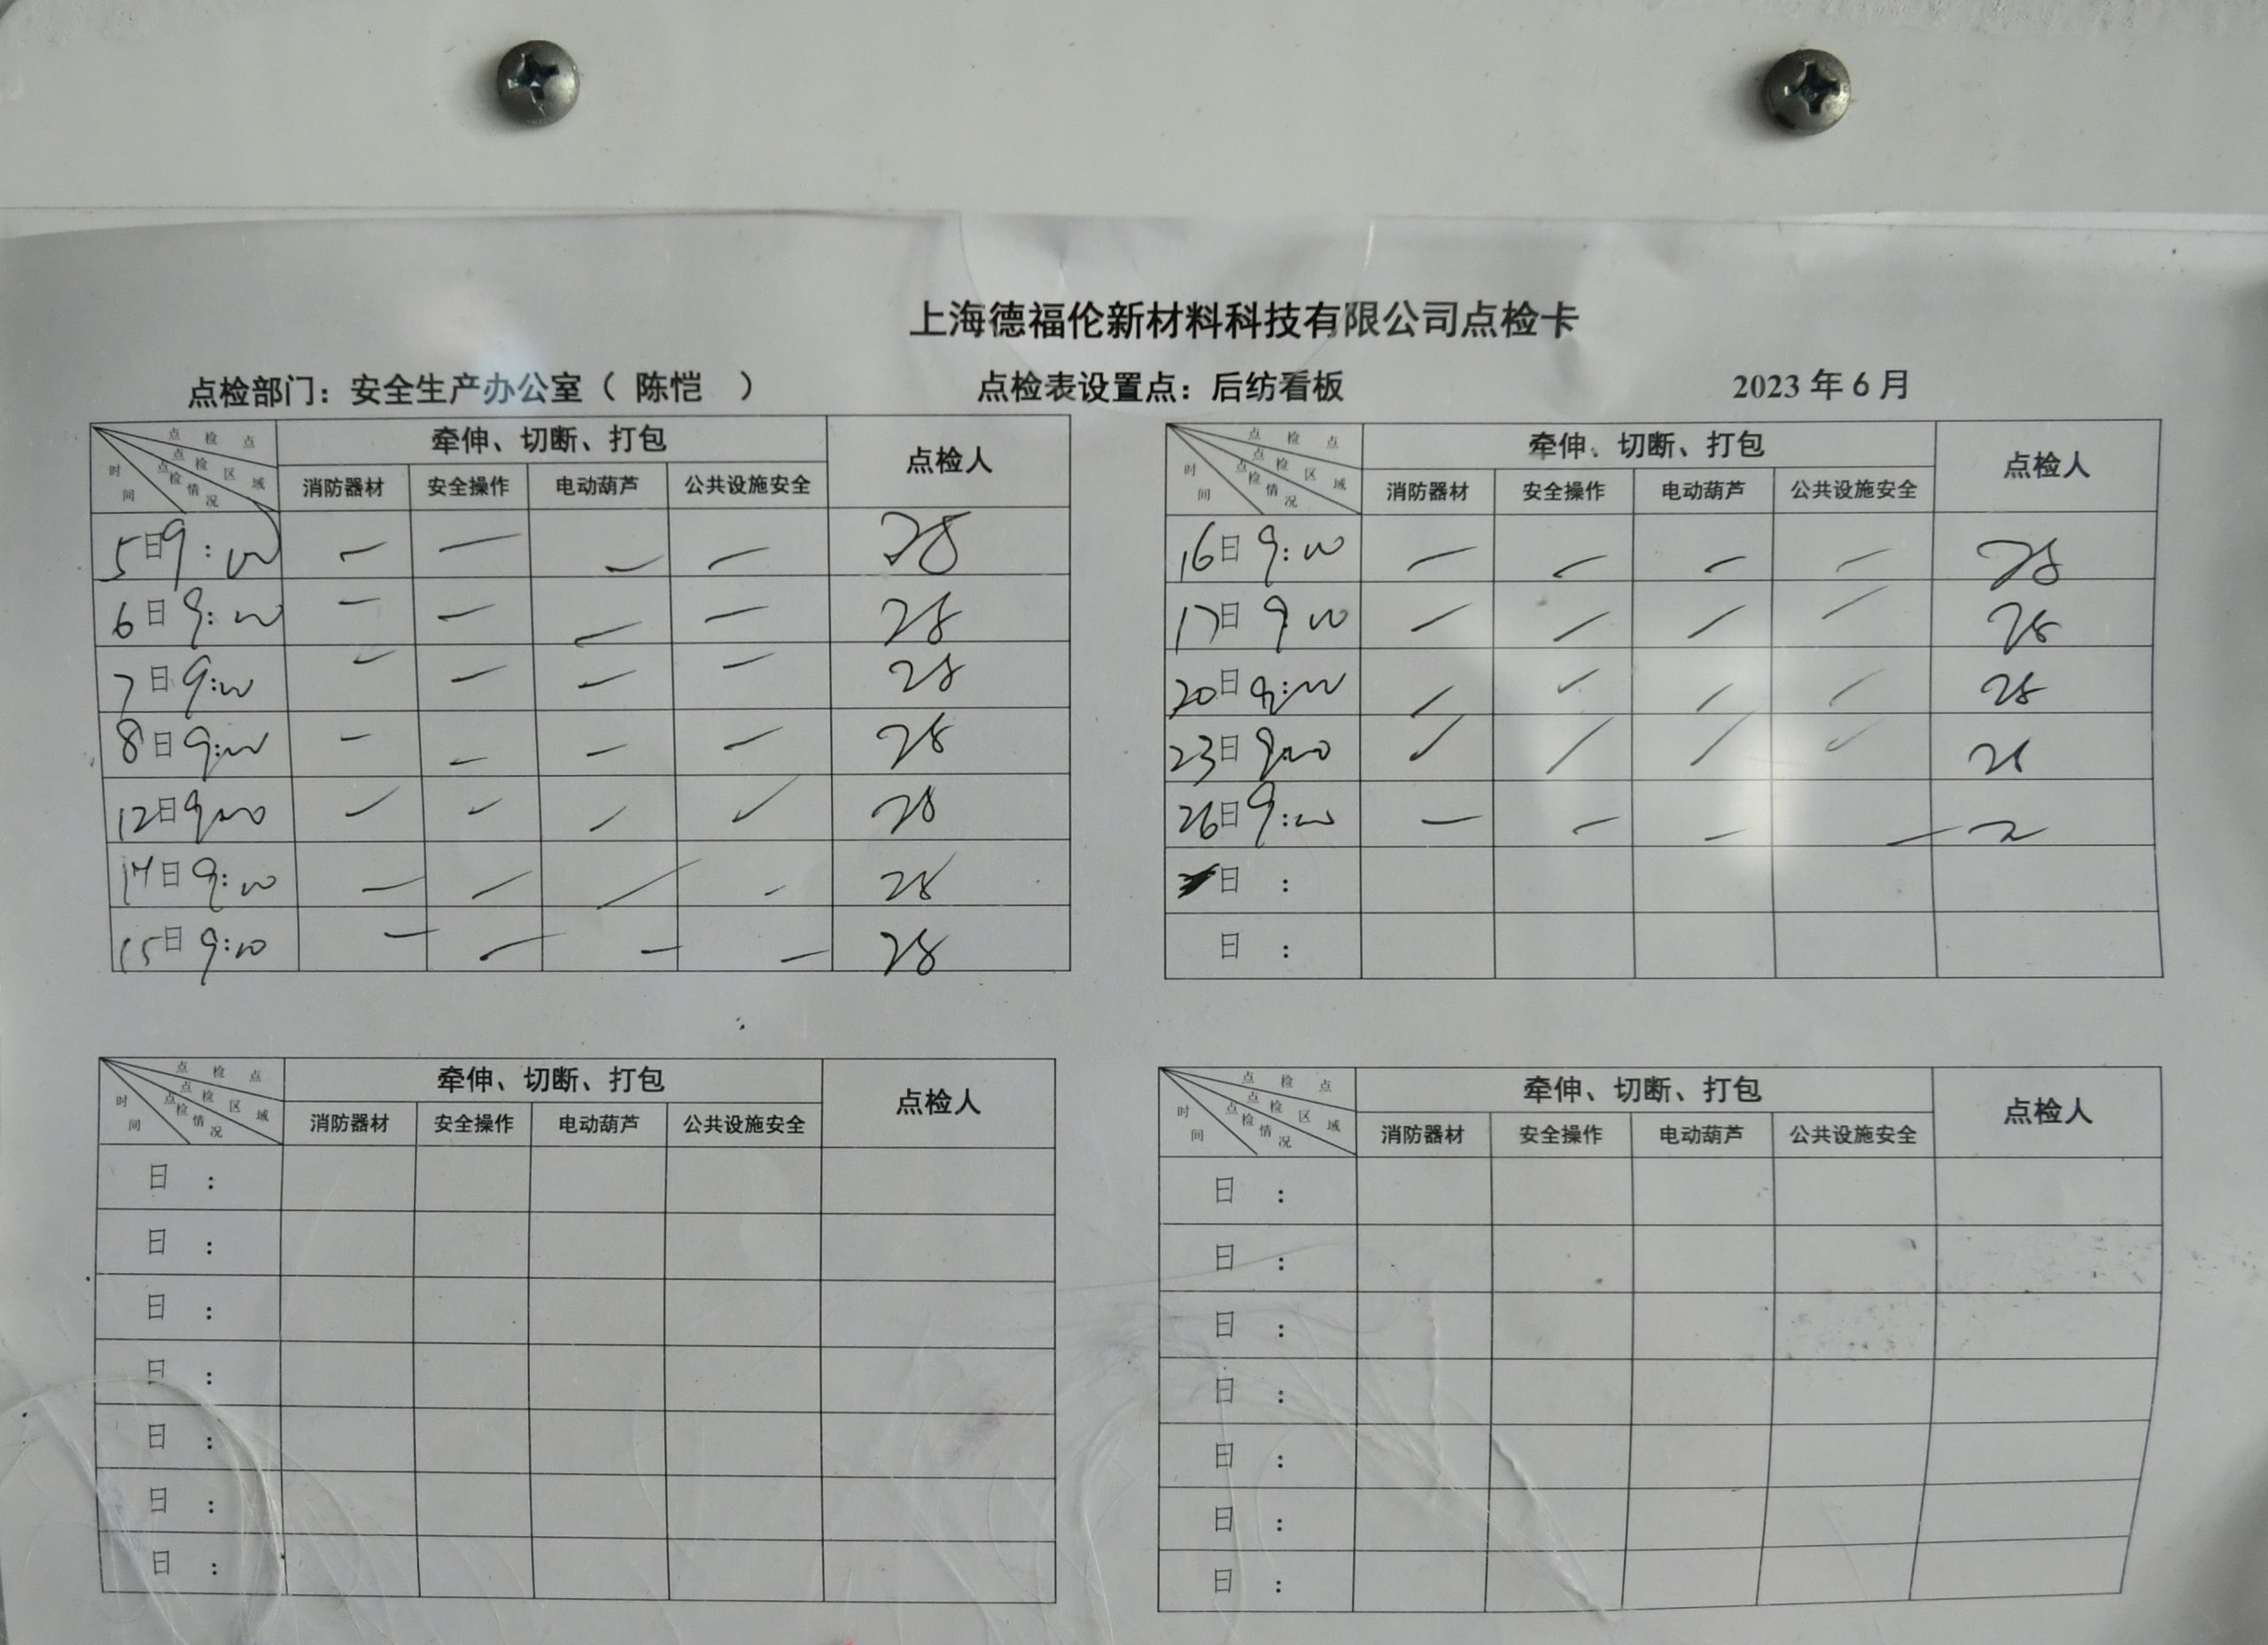 上海德福伦新材料科技有限公司点检卡
点检部门：安全生产办公室（ 陈恺 ） 点检表设置点：后纺看板 2023 年 6 月
点检点 点检区域 点检情况 时间 牵伸、切断、打包 点检人
消防器材 安全操作 电动葫芦 公共设施安全
5日9:00
6日9:00
7日9:00
8日9:00
12日9:00
14日9:00
15日9:00
点检点 点检区域 点检情况 时间 牵伸、切断、打包 点检人
消防器材 安全操作 电动葫芦 公共设施安全
16日9:00
17日9:00
20日9:00
23日9:00
26日9:00
日 :
日 :
点检点 点检区域 点检情况 时间 牵伸、切断、打包 点检人
消防器材 安全操作 电动葫芦 公共设施安全
日 :
日 :
日 :
日 :
日 :
日 :
日 :
点检点 点检区域 点检情况 时间 牵伸、切断、打包 点检人
消防器材 安全操作 电动葫芦 公共设施安全
日 :
日 :
日 :
日 :
日 :
日 :
日 :